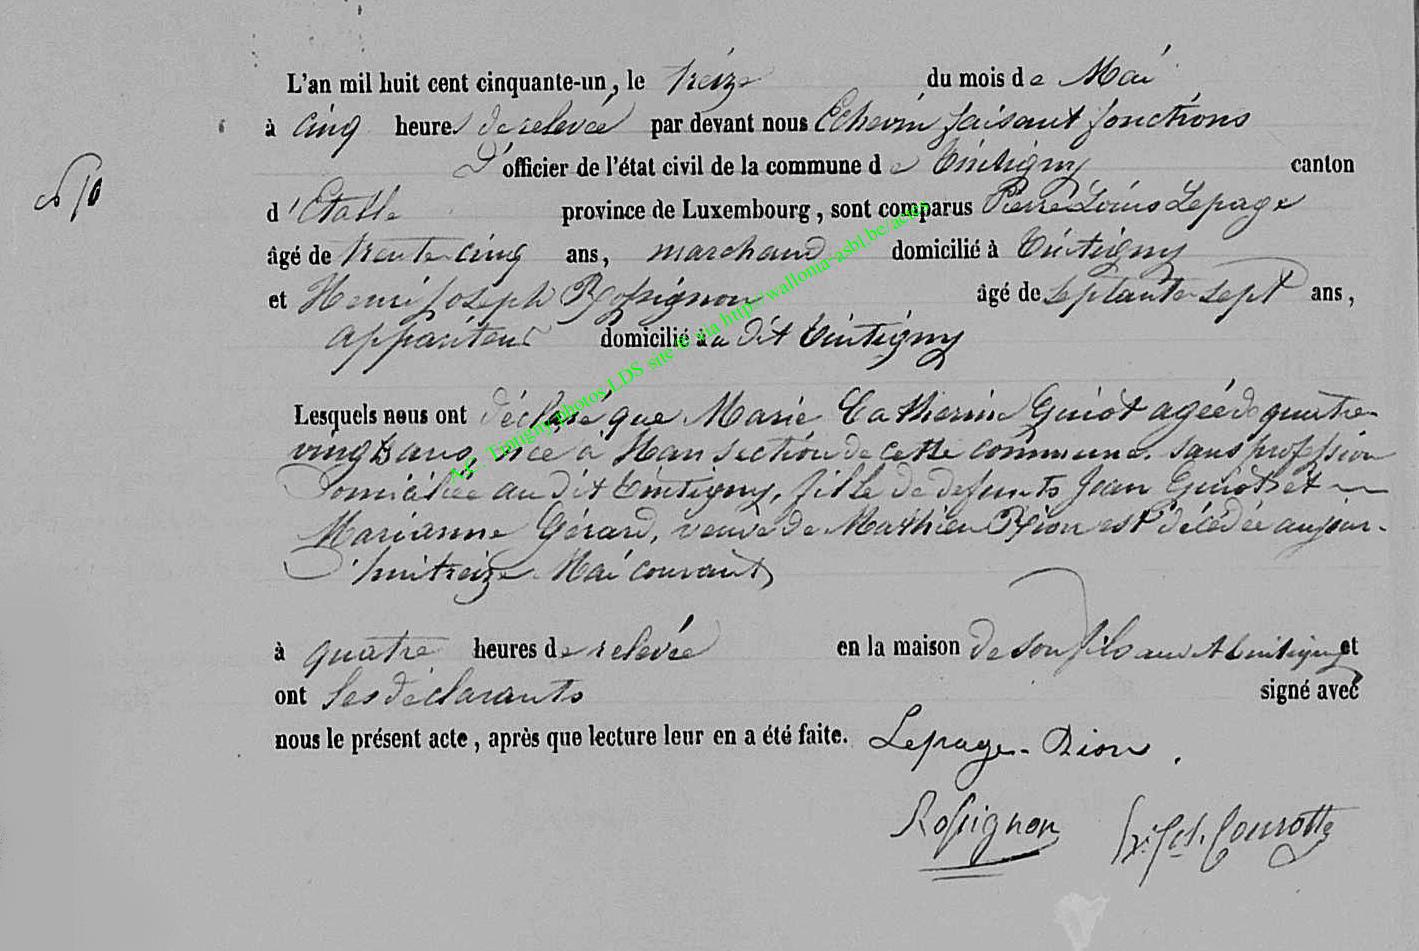 L'an mil huit cent cinquante-un, le treize du mois de Mai
à cinq heures de relevée par devant nous Echevin faisant fonctions
d'officier de l'état civil de la commune de Tintigny canton
d'Etalle province de Luxembourg, sont comparus Pierre Louis Lepage
âgé de trente cinq ans, marchand domicilié à Tintigny
et Henri Joseph Rossignon âgé de septante sept ans,
appariteur domicilié au dit Tintigny
Lesquels nous ont déclaré que Marie Catherine Guiot agée de quatre
vingts ans, née à Han section de cette commune, sans profession
domiciliée au dit Tintigny, fille de defunts Jean Guiot et
Marianne Gérard, veuve de Mathieu Rion est décédée aujour-
d'hui treize Mai courant
à quatre heures de relevée en la maison de son fils au dit Tintigny et
ont les déclarants signé avec
nous le présent acte, après que lecture leur en a été faite. Lepage-Rion
Rossignon Courotte
A.C. Tintigny photos LDS site © via http://wallonia-asbl.be/actes